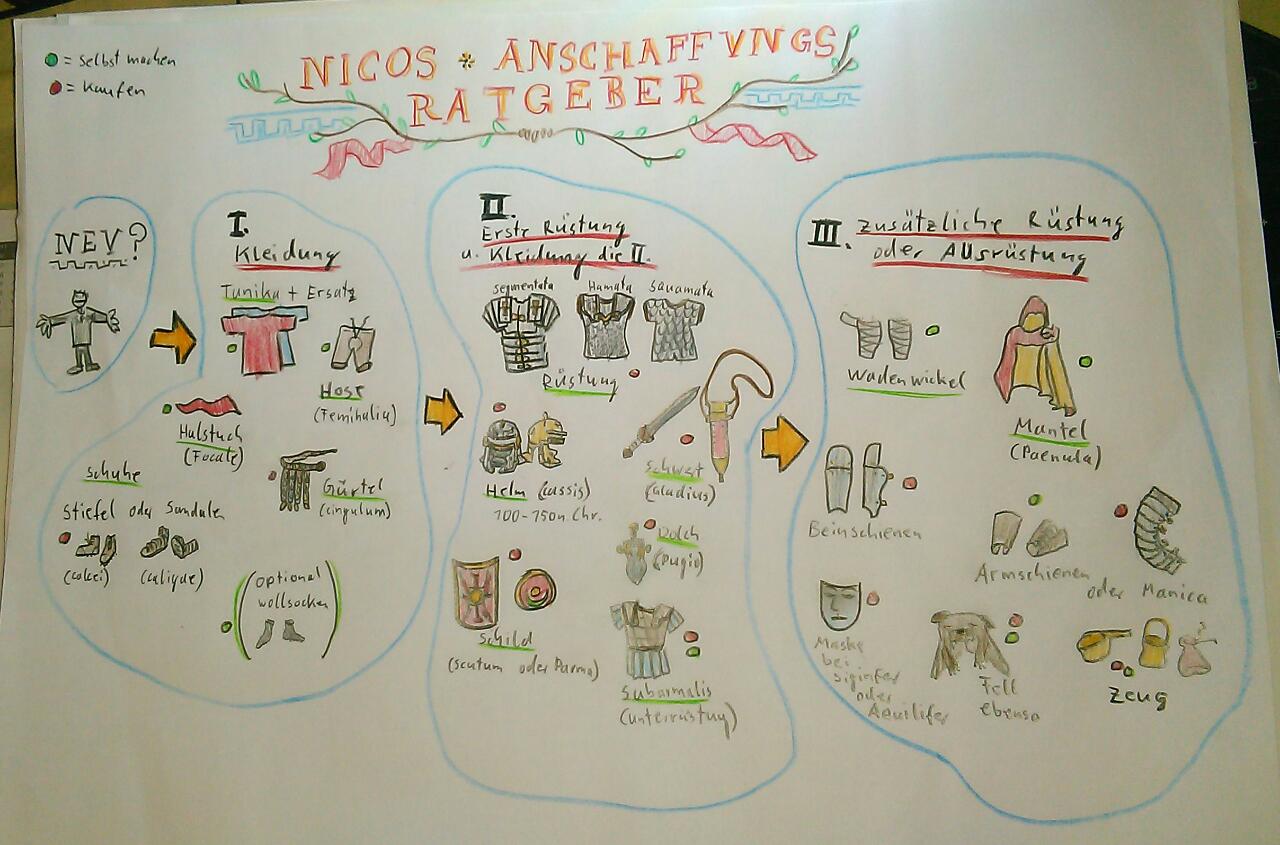 = selbst machen
= kaufen
NICOS * ANSCHAFFVNGS
RATGEBER
NEV?
I.
Kleidung
Tunika + Ersatz
Hose
(Feminalia)
Halstuch
(Focale)
Schuhe
Stiefel oder Sandalen
(calcei)
(caligae)
Gürtel
(cingulum)
(optional
wollsocken)
II.
Erste Rüstung
u. Kleidung die II.
Segmentata
Hamata
Squamata
Rüstung
Helm (cassis)
100-150 n. Chr.
Schwert
(Gladius)
Dolch
(Pugio)
Schild
(scutum oder Parma)
Subarmalis
(unterrüstung)
III. Zusätzliche Rüstung
oder AUsrüstung
Wadenwickel
Mantel
(Paenula)
Beinschienen
Armschienen
oder Manica
Maske
bei
Signifer
oder
Aquilifer
Fell
ebenso
Zeug